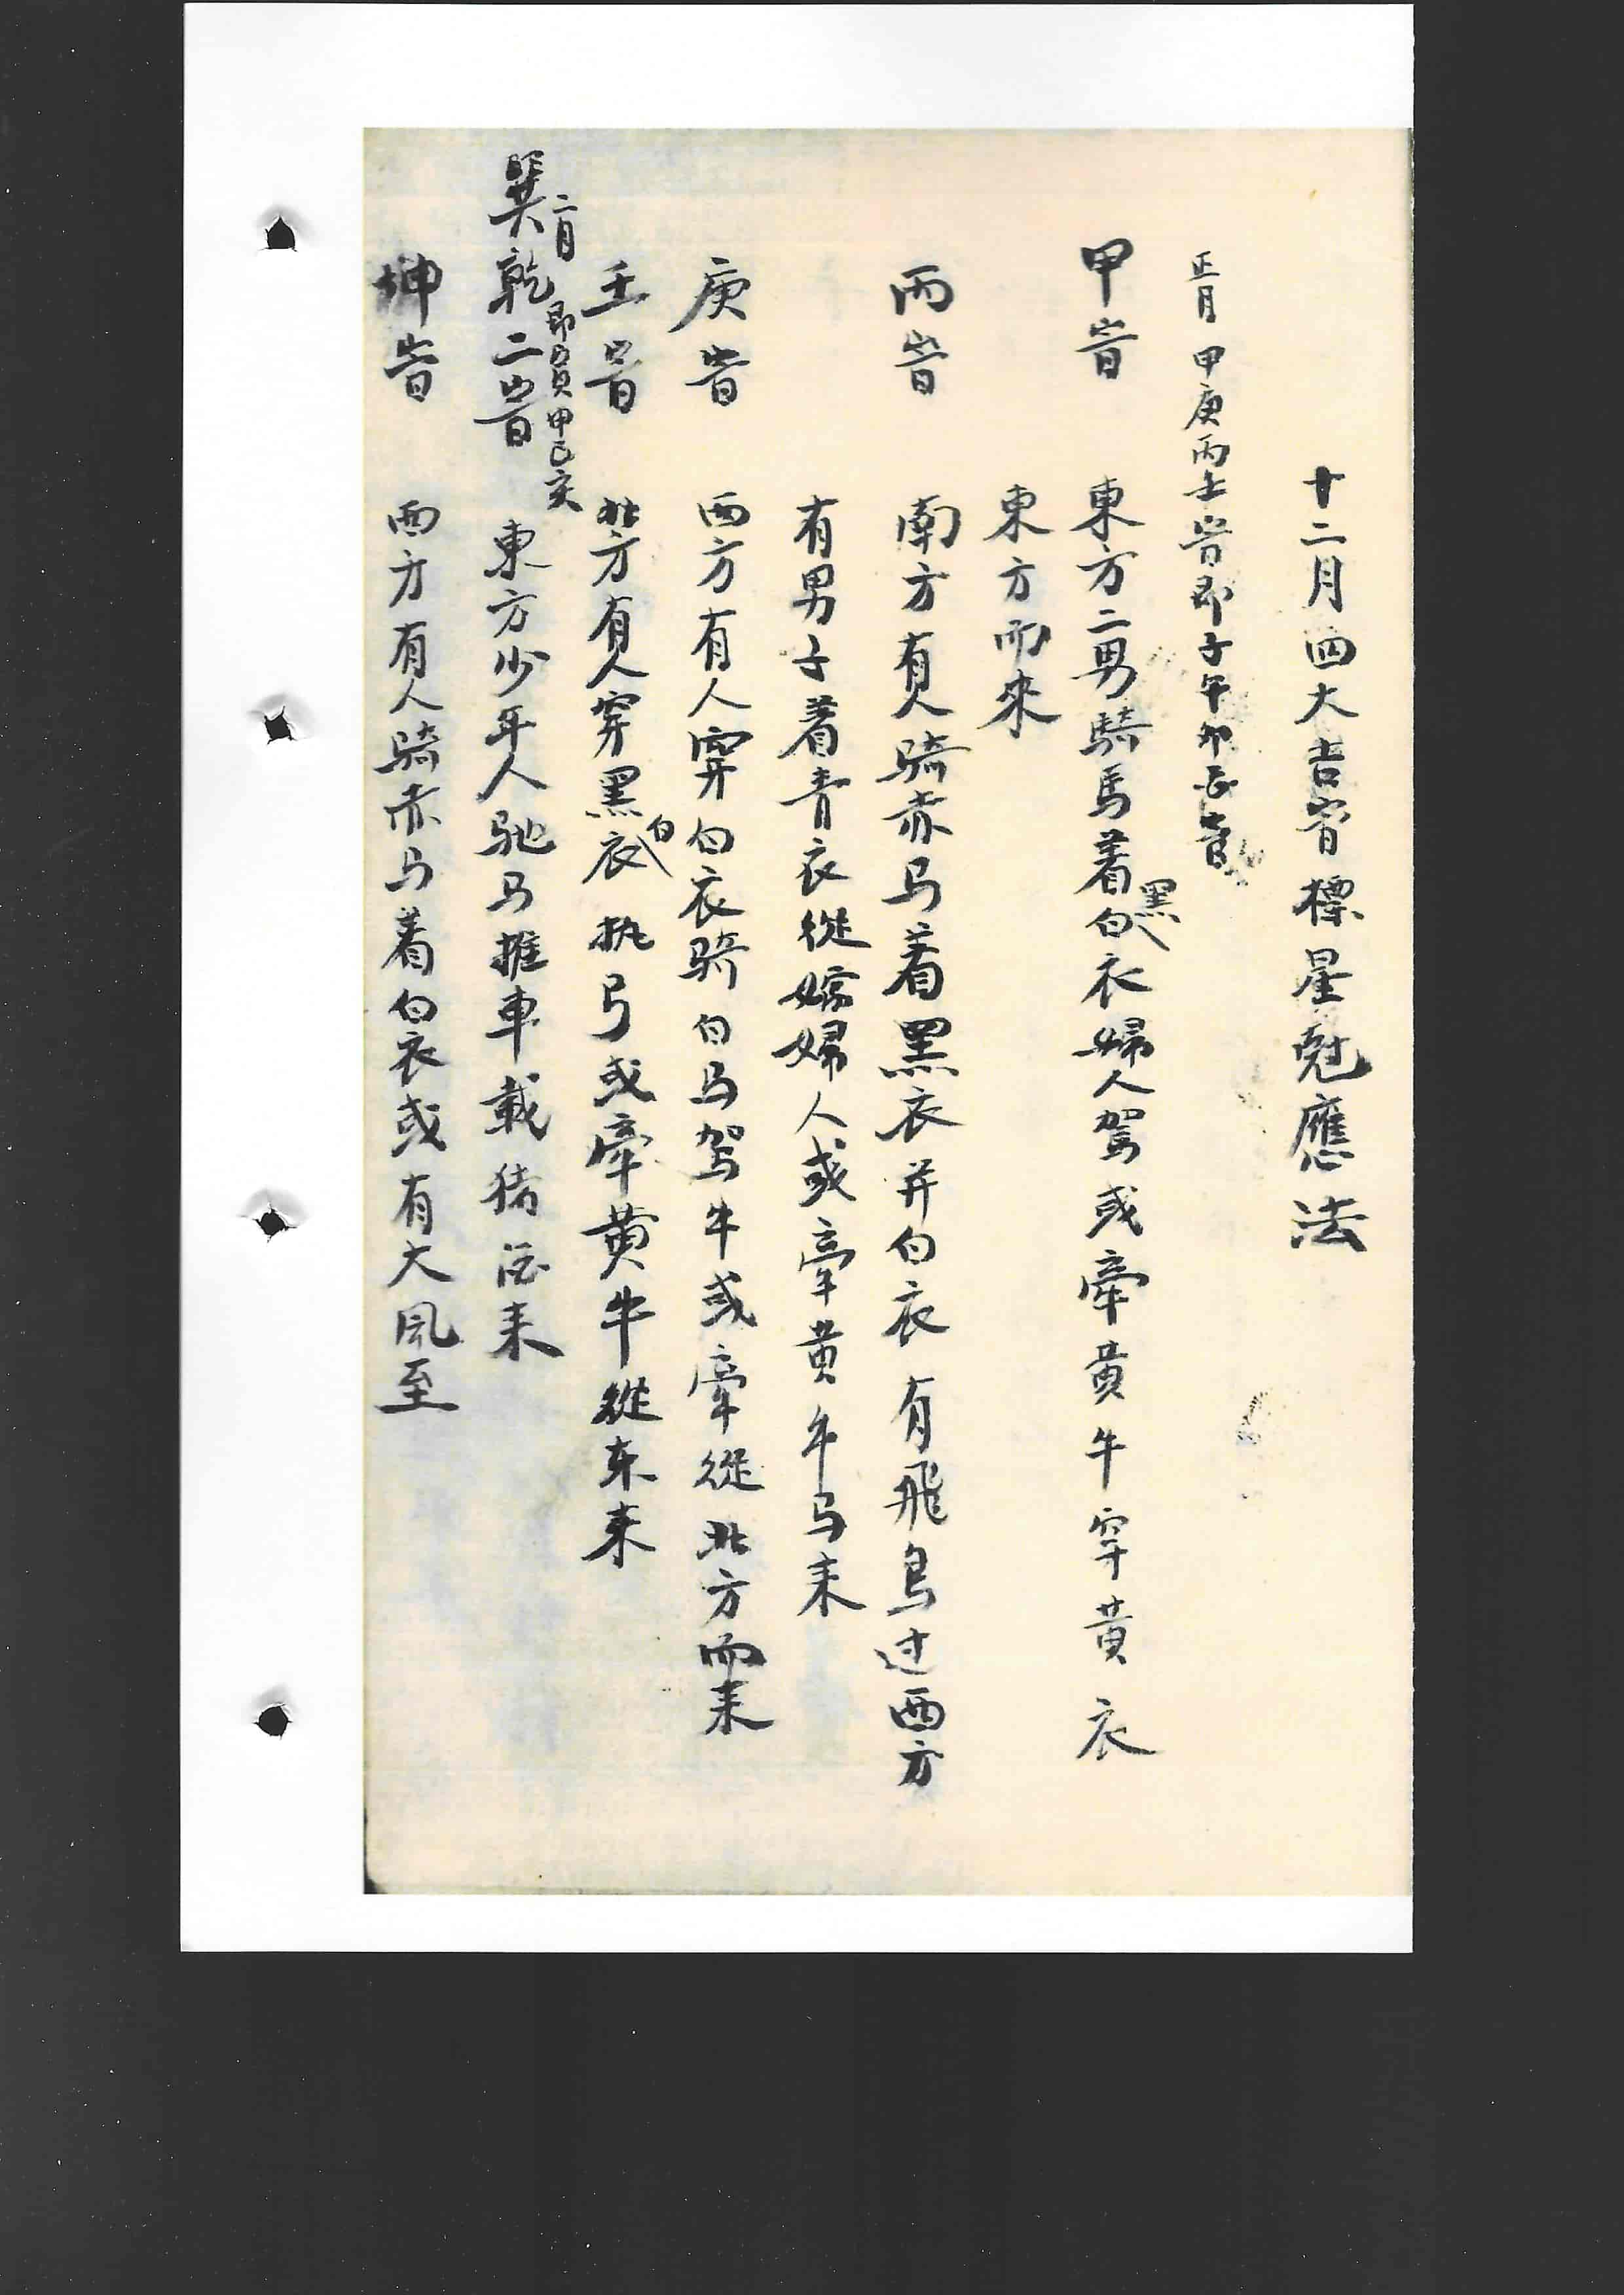 十二月四大吉旹標星尅應法
正月 甲庚丙壬旹即子午卯酉旹
甲旹 東方二男騎馬着白黑衣婦人駕或牽黃牛穿黃衣
東方而來
丙旹 南方有人骑赤马着黑衣并白衣有飛鳥过西方
有男子着青衣從嫁婦人或牽黄牛马来
庚旹 西方有人穿白衣骑白马驾牛或牽從北方而来
壬旹 北方有人穿黑白衣执弓或牽黄牛從东来
二月 即寅申巳亥
巽乾二旹 東方少年人驰马推車載猪酒来
坤旹 西方有人骑赤马着白衣或有大風至